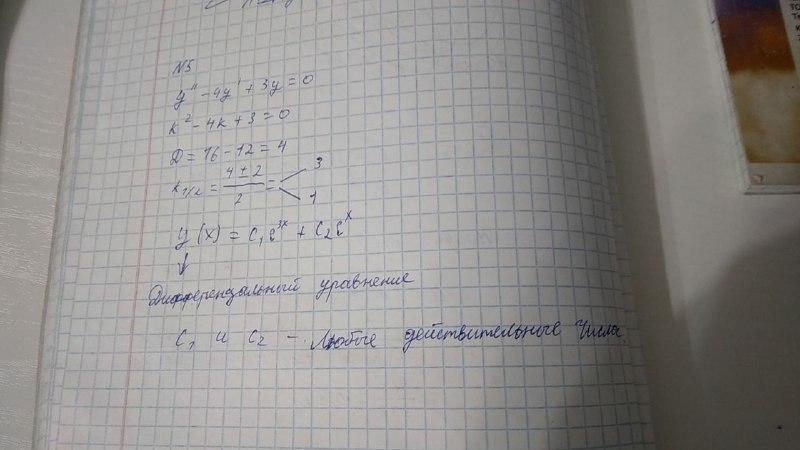 №5
y'' - 4y' + 3y = 0
k² - 4k + 3 = 0
D = 16 - 12 = 4
k₁/₂ = (4 ± 2)/2 = 3
1
y(x) = C₁e³ˣ + C₂eˣ
↓
Дифферендальный уравнение
C₁ и C₂ - Любые действительные числа